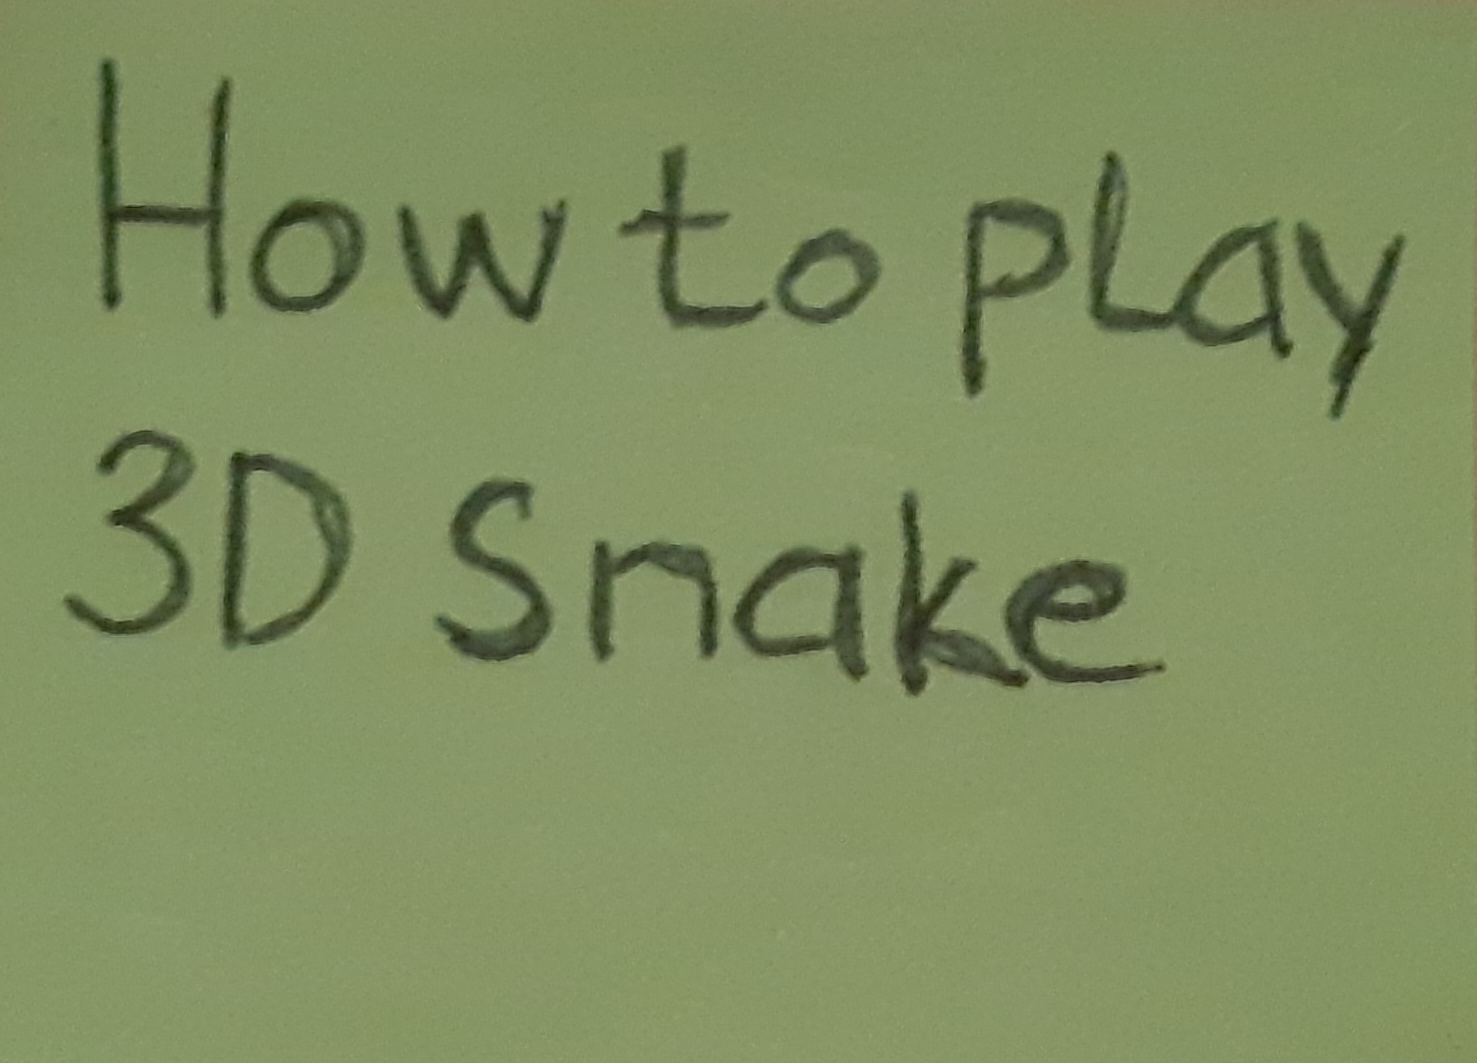 How to play
3D Snake